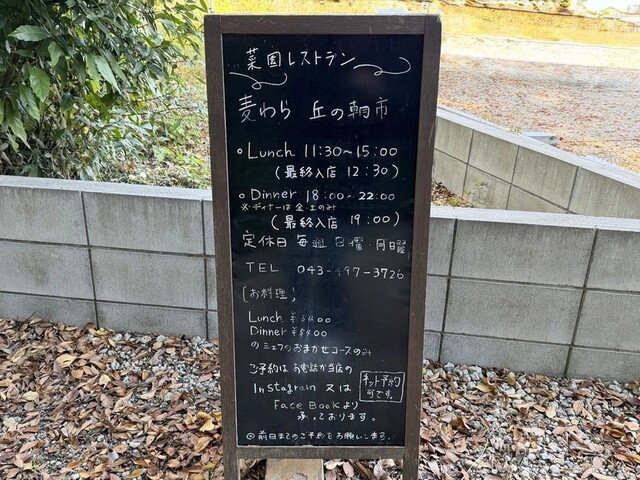 菜園レストラン
麦わら 丘の朝市
○ Lunch 11:30~15:00
(最終入店 12:30)
○ Dinner 18:00~22:00
※ディナーは金・土のみ
(最終入店 19:00)
定休日 毎週 日曜・月曜
TEL 043-497-3726
(お料理)
Lunch
Dinner
のシェフのおまかせコースのみ
ご予約は お電話か当店の
Instagram 又は
FaceBookより
承っております。
ネット予約
可です。
◎前日までのご予約をお願いします。